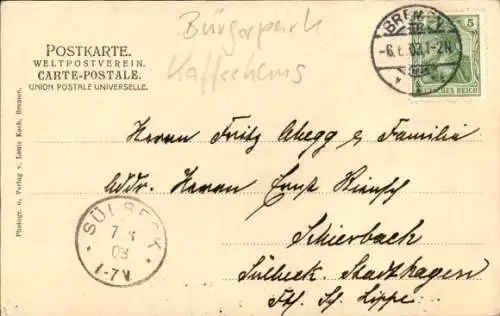 Bürgerpark
Kaffeehaus
POSTKARTE.
WELTPOSTVEREIN.
CARTE-POSTALE.
UNION POSTALE UNIVERSELLE.
BREMEN
-6.6.03.1-2N
5
DEUTSCHES REICH
Photogr. u. Verlag v. Louis Koch, Bremen.
Herrn Fritz Abegg & Familia
Addr. Herrn Ernst
Schierbach
Sülbeck. Stadthagen
Fth. Sch. Lippe.
SÜLBECK
7 6
03
1-7V